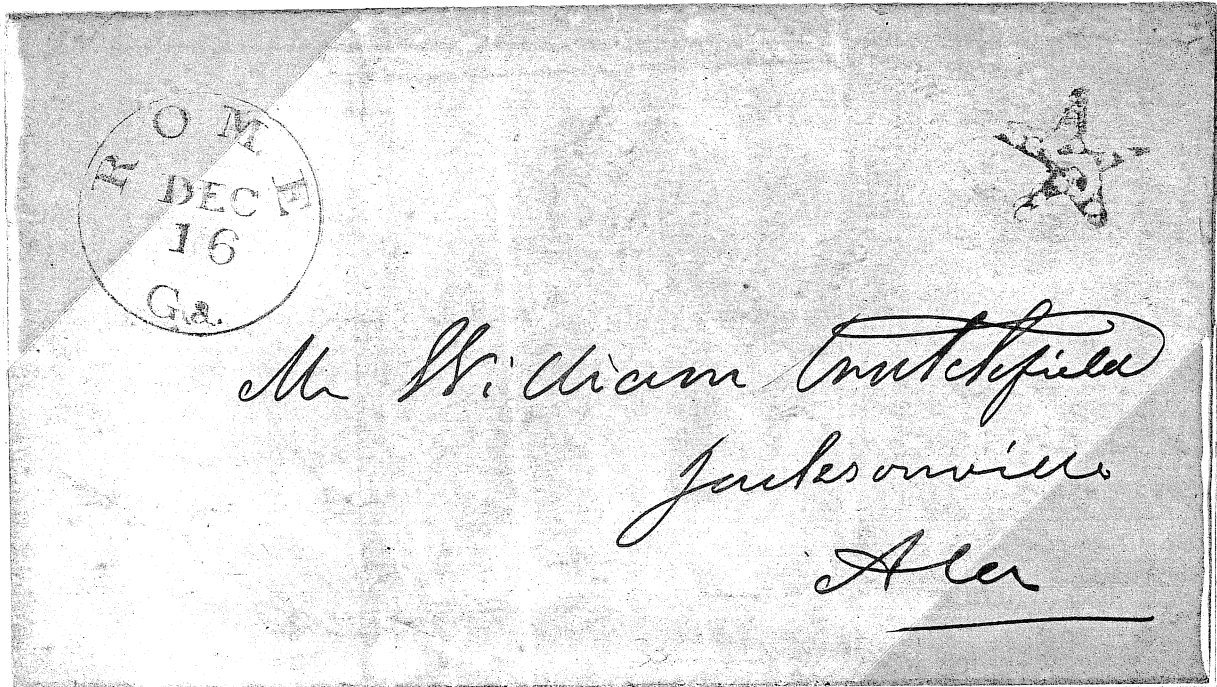 ROME
DEC
16
Ga.
Mr William Crutchfield
Jacksonville
Ala